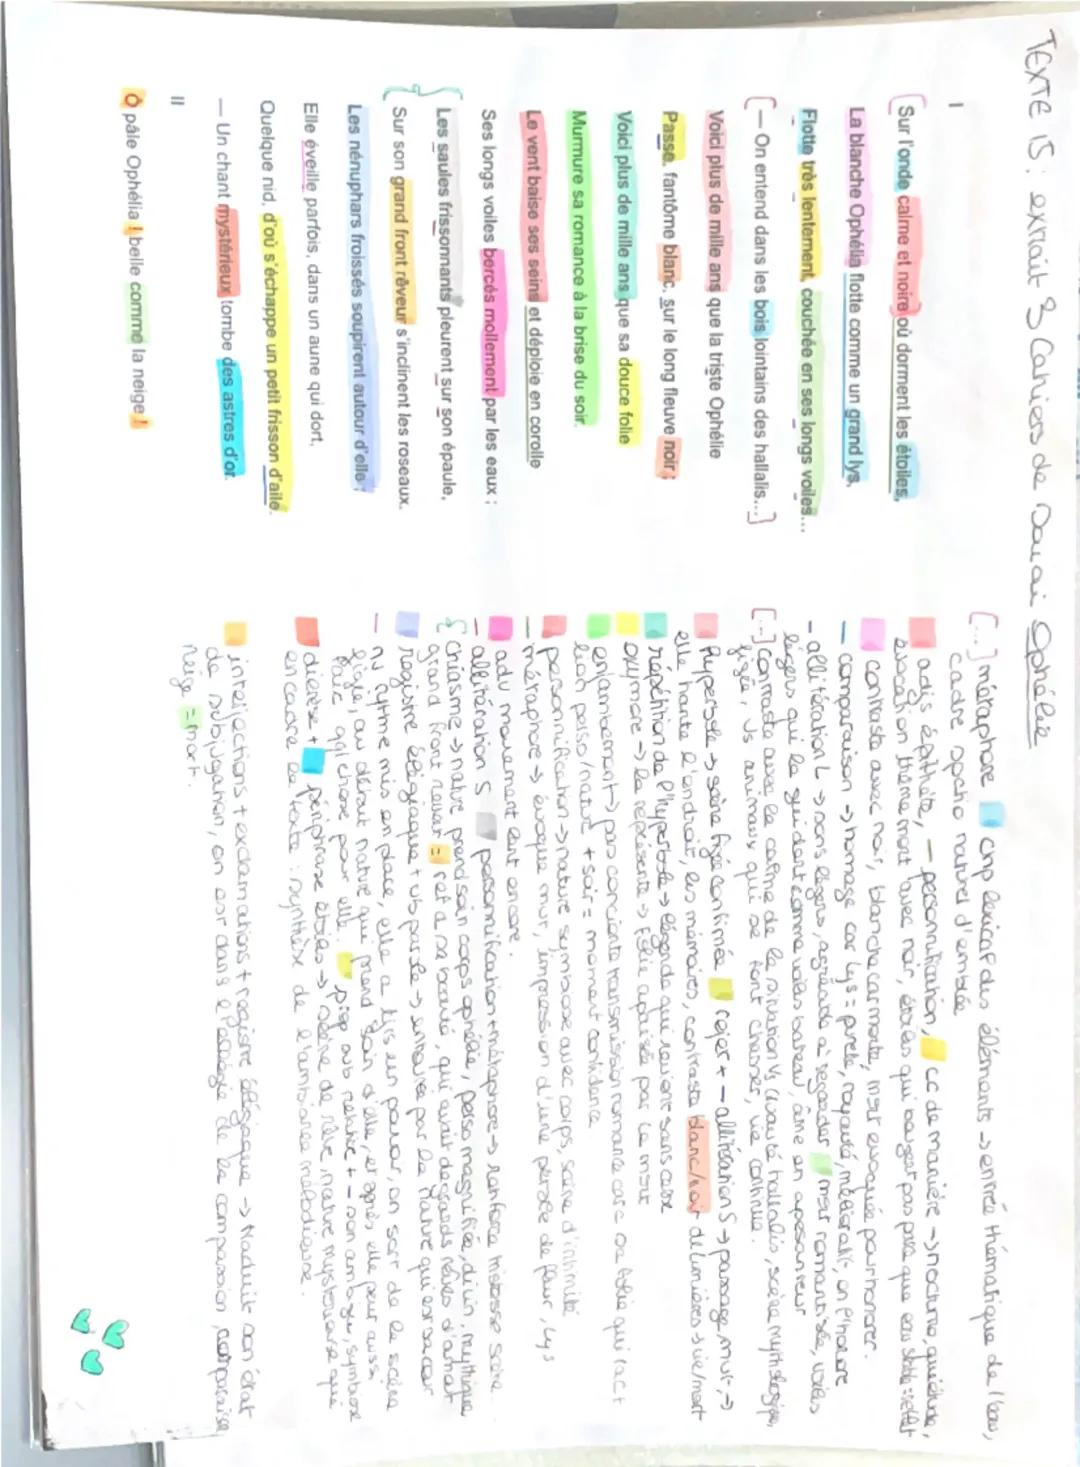 TEXTE 15 : extrait 3 Cahiers de Douai Ophélie
I
Sur l'onde calme et noire où dorment les étoiles,
La blanche Ophélia flotte comme un grand lys,
Flotte très lentement, couchée en ses longs voiles...
[– On entend dans les bois lointains des hallalis...]
Voici plus de mille ans que la triste Ophélie
Passe, fantôme blanc, sur le long fleuve noir ;
Voici plus de mille ans que sa douce folie
Murmure sa romance à la brise du soir.
Le vent baise ses seins et déploie en corolle
Ses longs voiles bercés mollement par les eaux ;
Les saules frissonnants pleurent sur son épaule,
Sur son grand front rêveur s'inclinent les roseaux.
Les nénuphars froissés soupirent autour d'elle ;
Elle éveille parfois, dans un aune qui dort,
Quelque nid, d'où s'échappe un petit frisson d'aile :
– Un chant mystérieux tombe des astres d'or.
II
Ô pâle Ophélia ! belle comme la neige !
[...] métaphore chp lexical des éléments → entrée thématique de l'eau,
cadre spatio naturel d'emblée
adjs épithète, – personnification, cc de manière → nocturne, quiétude,
évocation thème mort avec noir, étoiles qui bougent pas parce que eau stable = reflet
contraste avec noir, blanche car morte, mort évoquée pour honorer.
– comparaison → homage car lys = pureté, royauté, mélioratif, on l'honore
– allitération L → sons légers, agréable à regarder mort romantisée, voiles
légers qui la guident comme voiles bateau, âme en apesanteur
[...] contraste avec le calme de la situation vs cruauté hallalis, scène mythologique,
figée, vs animaux qui se font chasser, vie continue.
hyperbole → scène figée confirmée rejet + – allitération S → passage, mort, →
elle hante l'endroit, les mémoires, contraste blanc/noir de lumières → vie/mort
répétition de l'hyperbole → légende qui revient sans cesse
oxymore → la représente → folie apaisée par la mort
enjambement → pas consciente transmission romance car c sa folie qui fait
lien perso/nature + soir = moment confidence
personnification → nature symbiose avec corps, scène d'intimité
– métaphore → évoque mort, impression d'une pensée de fleur, lys
adv mouvement lent encore.
– allitération S personnification + métaphore → renforce tristesse scène
{ chiasme → nature prend soin corps ophélie, perso magnifiée, divin, mythique
grand front rêveur = ref à sa beauté, qui avait des grands rêves d'achat
registre élégiaque + vb parole → entourée par la nature qui est sa cour
– nv rythme mis en place, elle a tjrs un pouvoir, on sort de la scène
figée, au début nature qui prend soin d'elle, et après elle peut aussi
faire qql chose pour elle prop sub relative + – son ambigu, symbiose
diérèse + périphrase étoiles → scène de rêve, nature mystérieuse qui
encadre le texte : synthèse de l'ambiance mélodieuse.
interjections + exclamations + registre élégiaque → traduit son état
de subjugation, on est dans l'éllégie de la compassion, comparaison
neige = mort.